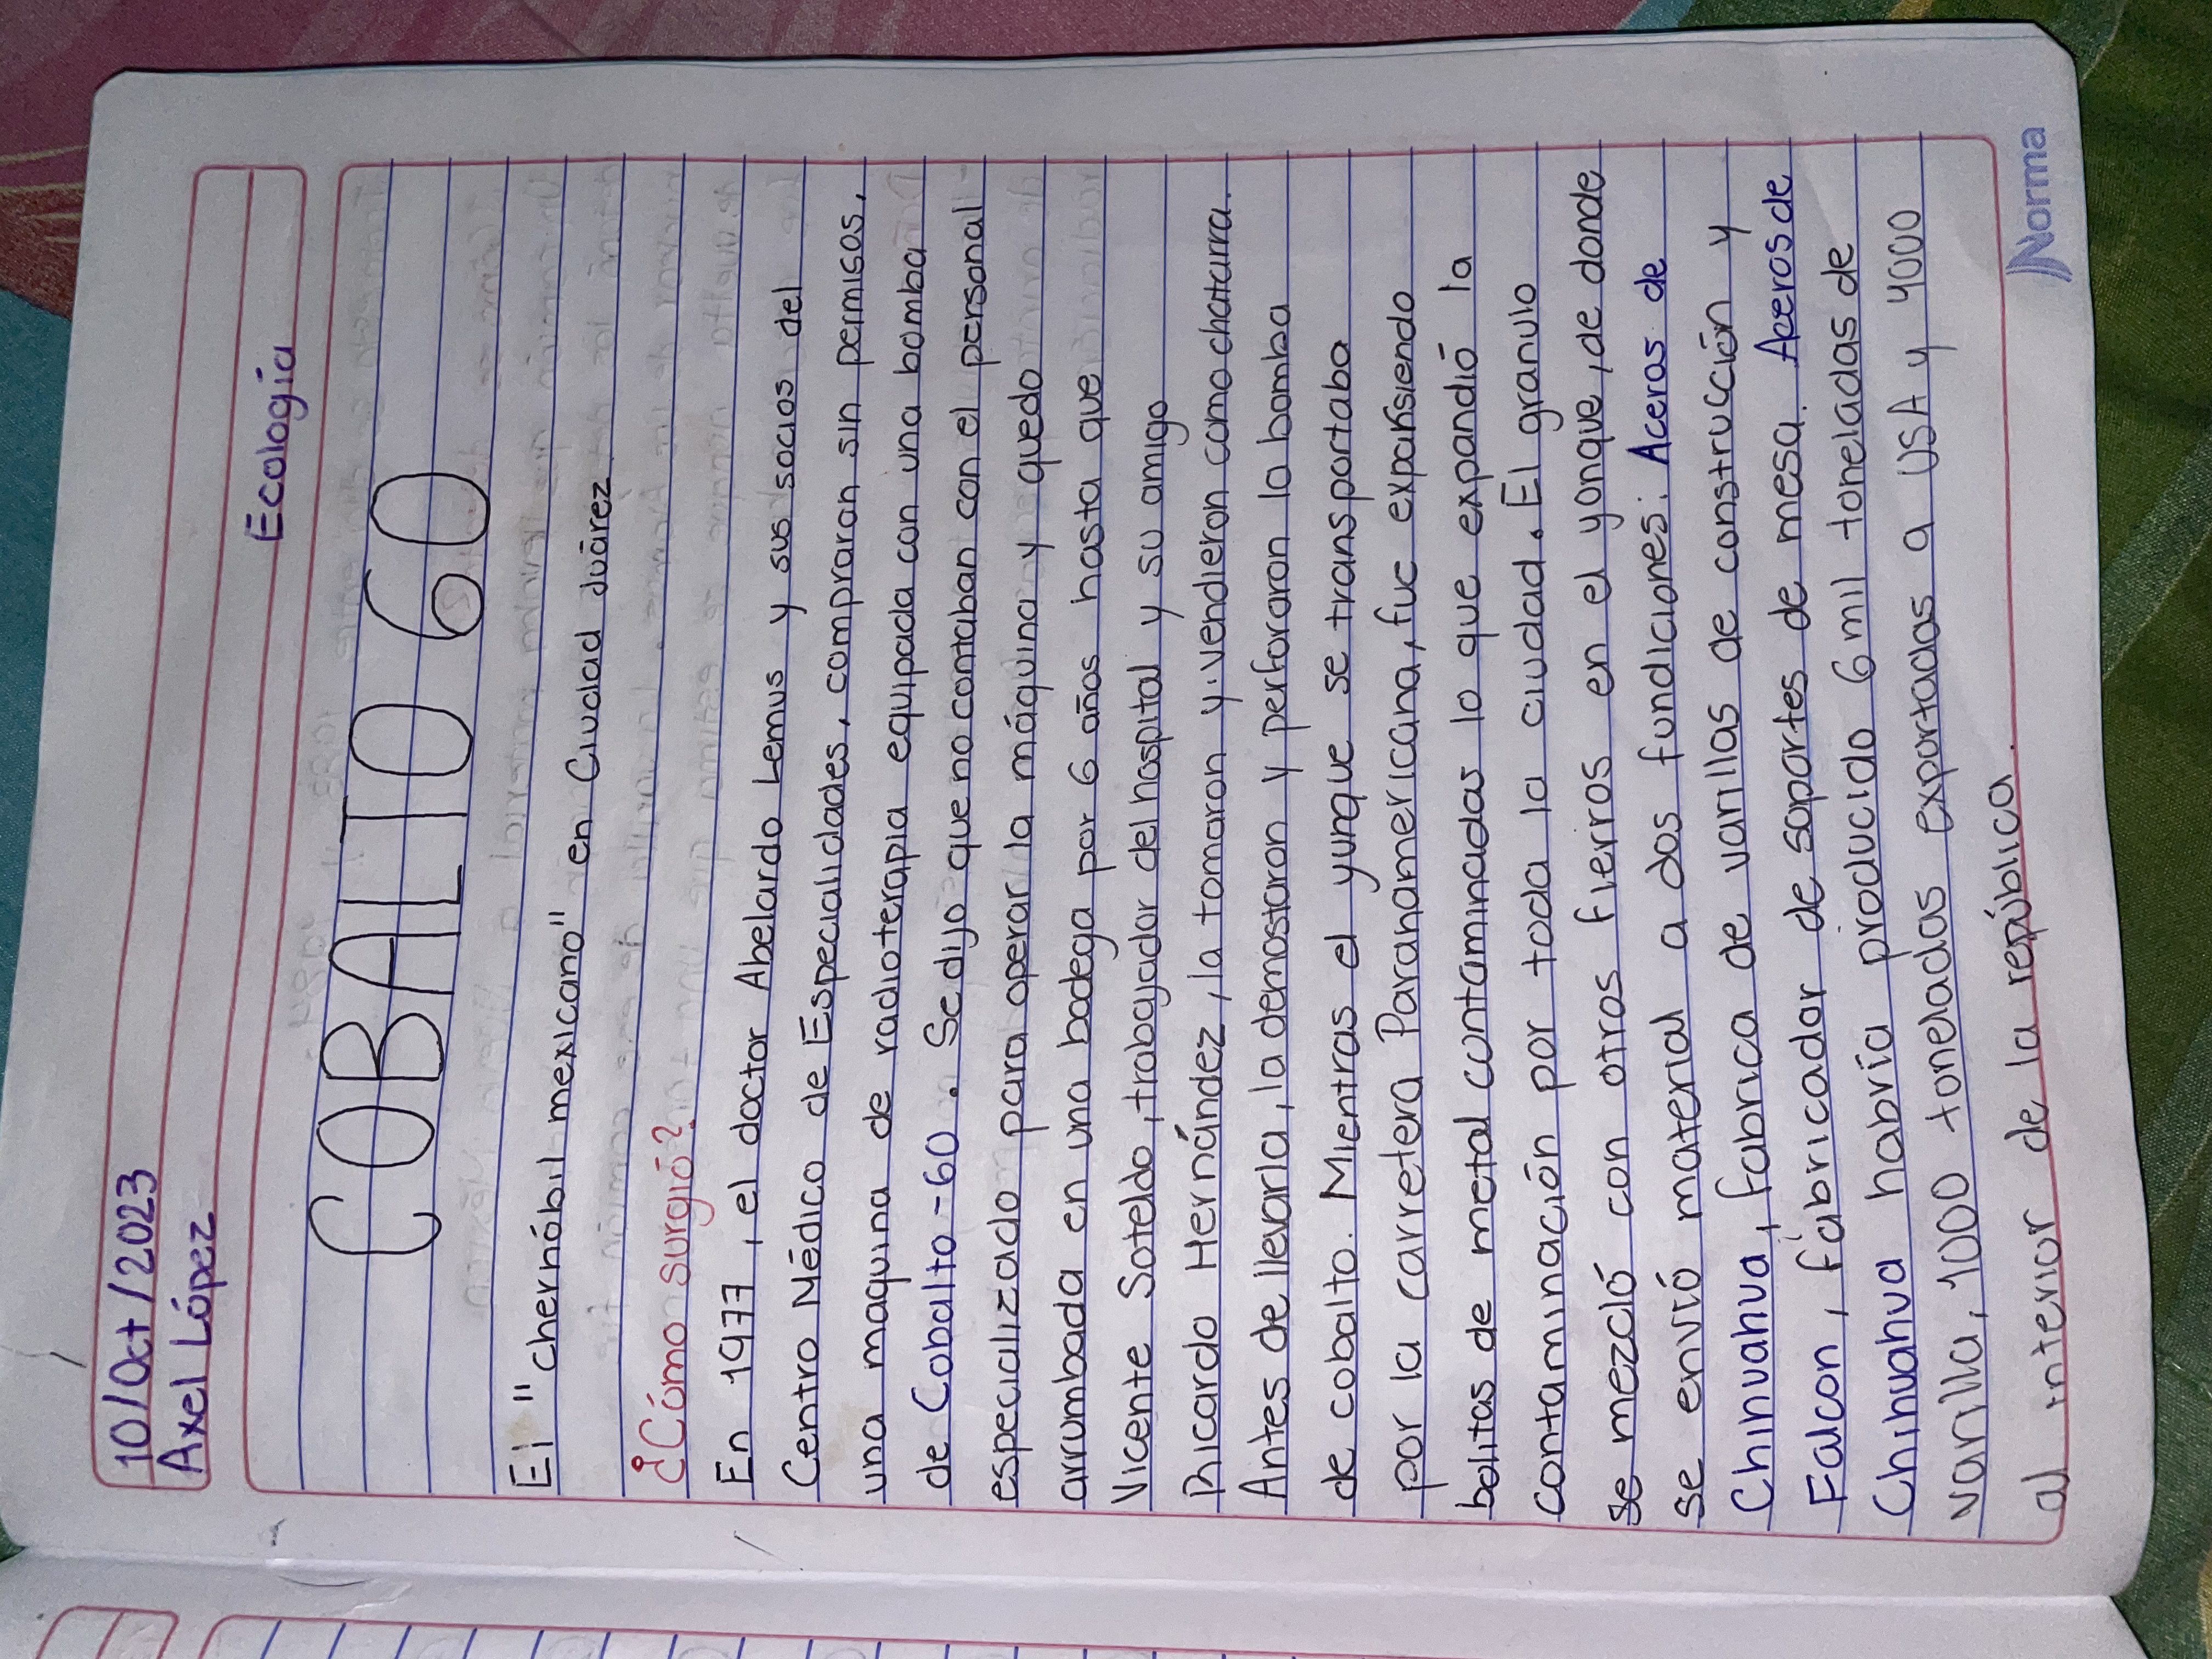 10/Oct/2023
Axel López
Ecología
COBALTO 60
El "chernóbil mexicano" en Ciudad Juárez
¿Cómo surgió?
En 1977, el doctor Abelardo Lemus y sus socios del
Centro Médico de Especialidades, compraron sin permisos,
una maquina de radioterapia equipada con una bomba
de Cobalto-60. Se dijo que no contaban con el personal
especializado para operar la máquina y quedo
arrumbada en una bodega por 6 años hasta que
Vicente Soteldo, trabajador del hospital y su amigo
Ricardo Hernández, la tomaron y vendieron como chatarra.
Antes de llevarla, la demostaron y perforaron la bomba
de cobalto. Mientras el yunque se transportaba
por la carretera Paranamericana, fue expansiendo
bolitas de metal contaminadas lo que expandió la
contaminación por toda la ciudad. El granulo
se mezcló con otros fierros en el yonque, de donde
se envió material a dos fundiciones: Aceros de
Chihuahua, fabrica de varillas de construcción y
Falcon, fabricador de soportes de mesa. Aceros de
Chihuahua habría producido 6 mil toneladas de
varilla, 1000 toneladas exportadas a USA y 4000
al interior de la república.
Norma